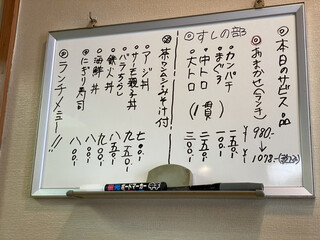 ◎本日のサービス品
◎おまかせ(ランチ) ¥980-
¥1078-(税込)
すしの部
・カンパチ 一五〇-
・まぐろ 一五〇-
・中トロ(1貫) 二〇〇-
・大トロ 三〇〇-
茶ワンムシみそ汁付
・アジ丼 七〇〇-
・サーモン親子丼 八五〇-
・バラちらし 九五〇-
・鉄火丼 九〇〇-
・海鮮丼 八〇〇-
・にぎり寿司 八〇〇-
◎ランチメニュー!!
ボードマーカー